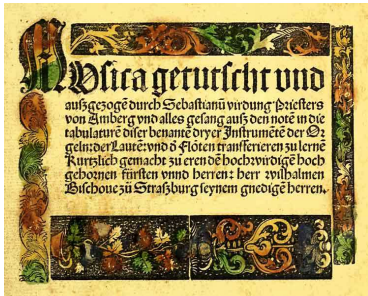 MVsica getutscht vnd
außgezogē durch Sebastianū virdung Priesters
von Amberg vnd alles gesang auß den notē in die
tabulaturē diser benantē dryer Instrumētē der Or
geln: der Lautē: vnd ď Flöten transferieren zu lernē
Kurtzlich gemacht zu eren dē hochwirdigē hoch
gebornen fürsten vnnd herren: herr wilhalmen
Bischoue zū Straßburg seynem gnedigē herren.